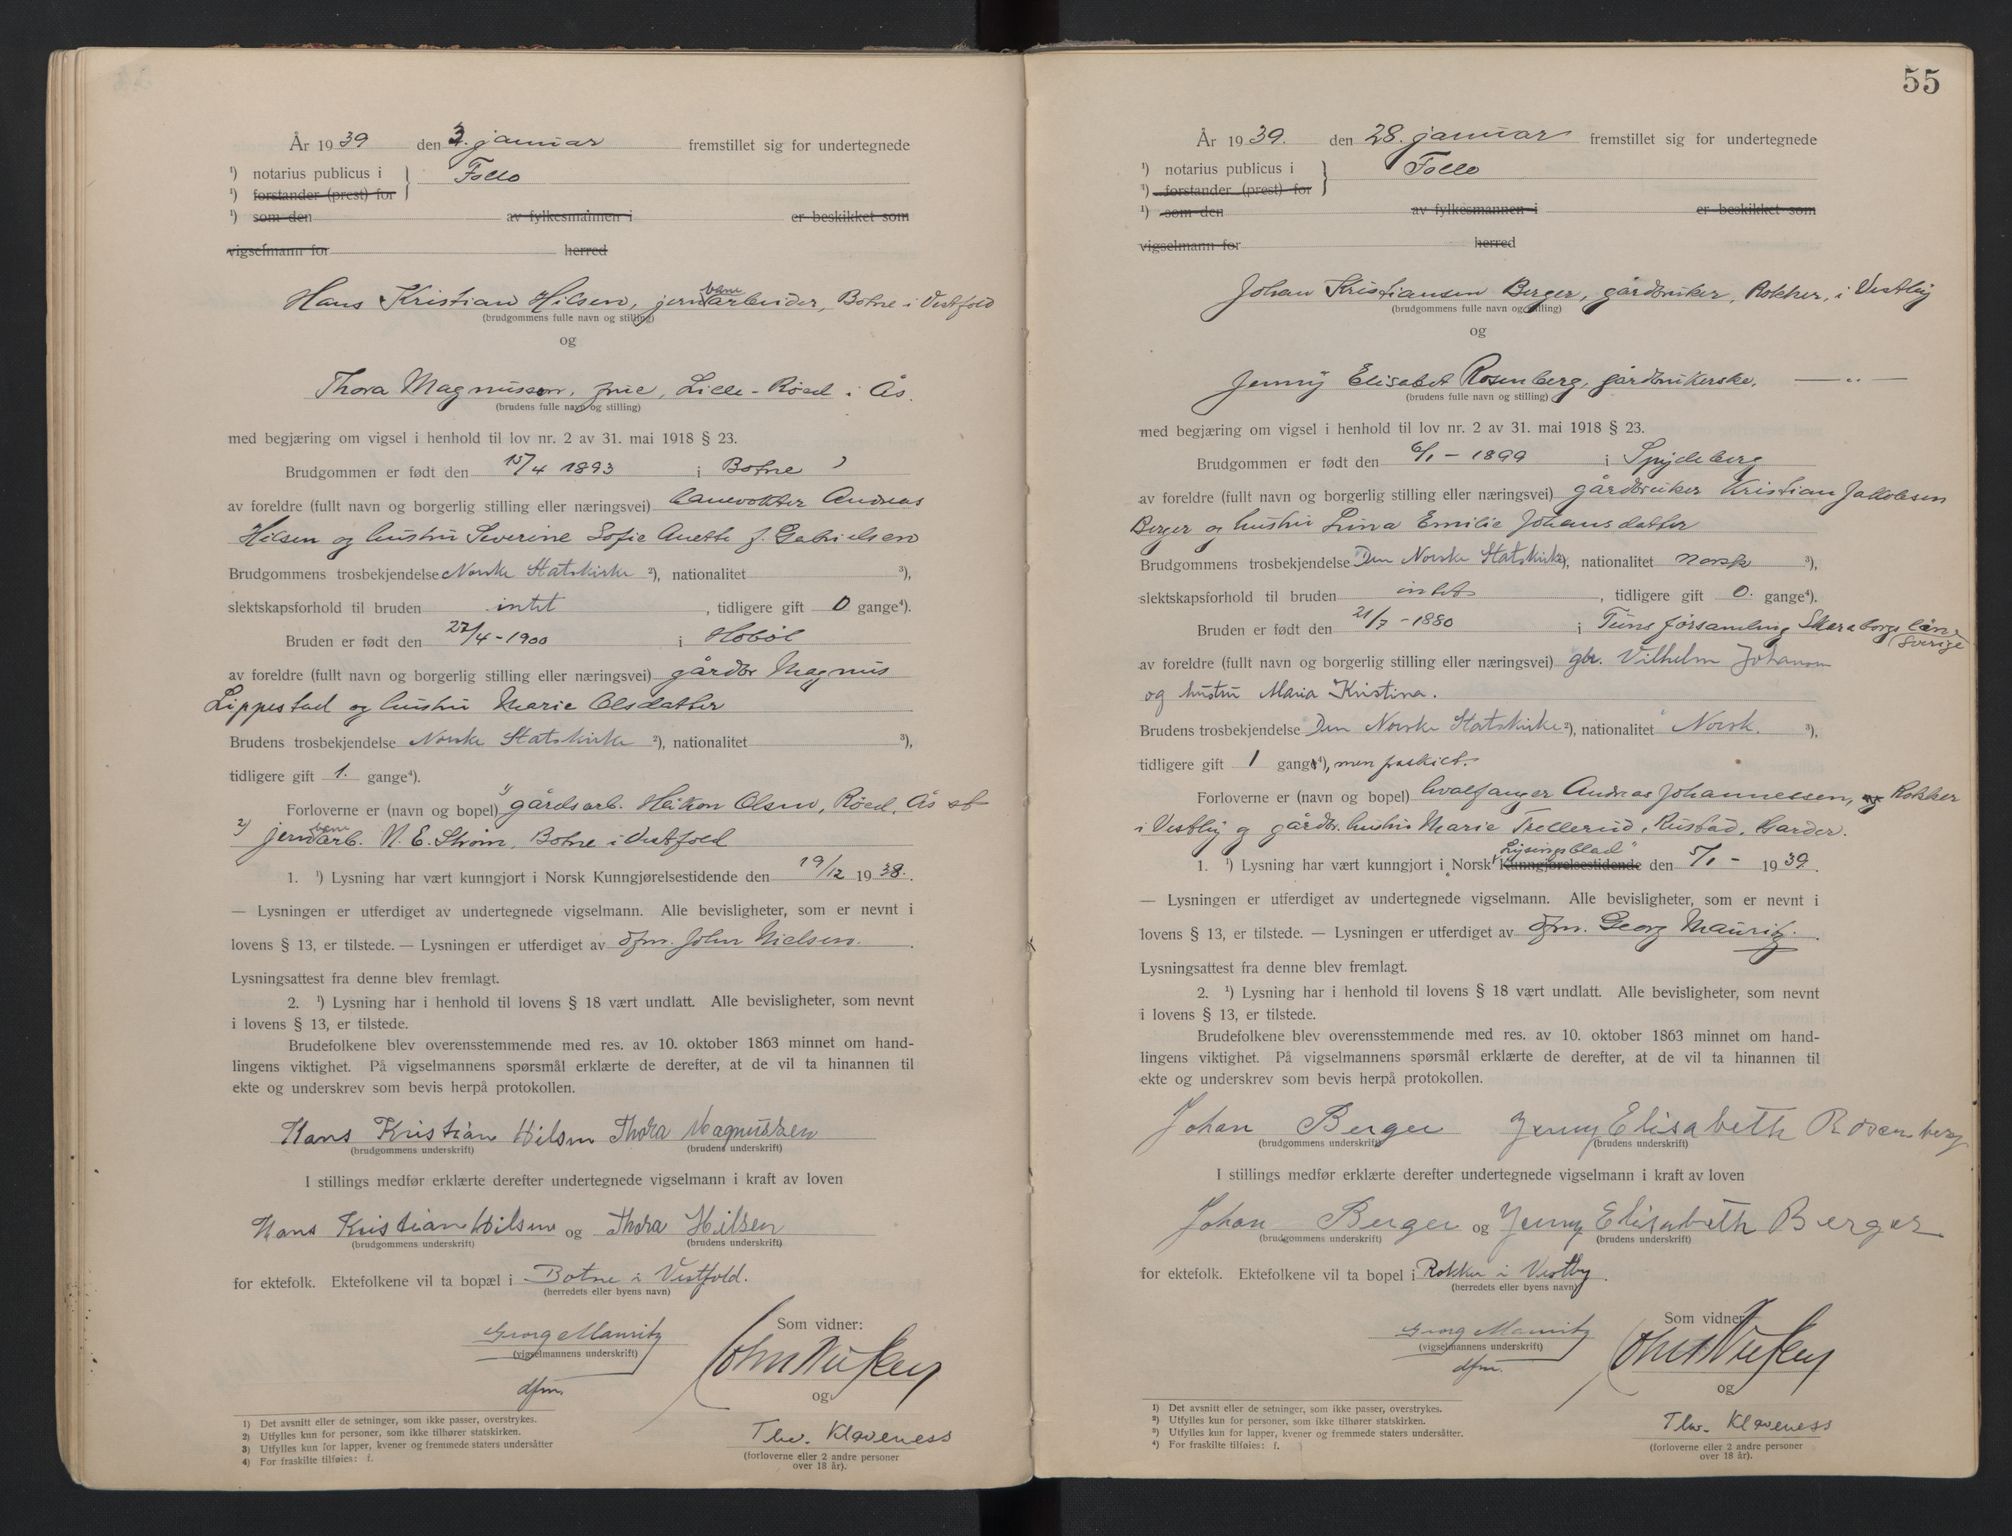 År 1939 den 3. januar fremstillet sig for undertegnede
¹) notarius publicus i Follo
¹) forstander (prest) for
¹) som den av fylkesmannen i er beskikket som
vigselmann for herred
Hans Kristian Hilsen, jernbanearbeider, Botne i Vestfold
(brudgommens fulle navn og stilling)
og
Thora Magnussen, frue, Lille-Røed i Ås.
(brudens fulle navn og stilling)
med begjæring om vigsel i henhold til lov nr. 2 av 31. mai 1918 § 23.
Brudgommen er født den 15/4 1893 i Botne
av foreldre (fullt navn og borgerlig stilling eller næringsvei) banevokter Andreas
Hilsen og hustru Severine Sofie Anette f. Gabrielsen
Brudgommens trosbekjendelse Norske Statskirke ²), nationalitet ³),
slektskapsforhold til bruden intet, tidligere gift 0 gange⁴).
Bruden er født den 27/4-1900 i Hobøl
av foreldre (fullt navn og borgerlig stilling eller næringsvei) gårdbr Magnus
Lippestad og hustru Marie Olsdatter
Brudens trosbekjendelse Norske Statskirke ²), nationalitet ³),
tidligere gift 1. gange⁴).
Forloverne er (navn og bopel) 1) gårdsarb. Håkon Olsen, Røed, Ås st
2) jernbanearb. N. E. Strøm, Botne i Vestfold
1. ¹) Lysning har vært kunngjort i Norsk Kunngjørelsestidende den 19/12 1938.
— Lysningen er utferdiget av undertegnede vigselmann. Alle bevisligheter, som er nevnt i
lovens § 13, er tilstede. — Lysningen er utferdiget av dfm. John Nielsen.
Lysningsattest fra denne blev fremlagt.
2. ¹) Lysning har i henhold til lovens § 18 vært undlatt. Alle bevisligheter, som nevnt
i lovens § 13, er tilstede.
Brudefolkene blev overensstemmende med res. av 10. oktober 1863 minnet om hand-
lingens viktighet. På vigselmannens spørsmål erklærte de derefter, at de vil ta hinannen til
ekte og underskrev som bevis herpå protokollen.
Hans Kristian Hilsen Thora Magnussen
(brudgommens underskrift) (brudens underskrift)
I stillings medfør erklærte derefter undertegnede vigselmann i kraft av loven
Hans Kristian Hilsen og Thora Hilsen
(brudgommens underskrift) (brudens underskrift)
for ektefolk. Ektefolkene vil ta bopæl i Botne i Vestfold.
(herredets eller byens navn)
Som vidner:
Georg Mauritz
(vigselmannens underskrift)
dfm.
og
Thv. Klaveness
(forloverne eller 2 andre personer
over 18 år).
1) Det avsnitt eller de setninger, som ikke passer, overstrykes.
2) Utfylles kun for personer, som ikke tilhører statskirken.
3) Utfylles kun for lapper, kvener og fremmede staters undersåtter
4) For fraskilte tilføies: f.
55
År 1939. den 28. januar fremstillet sig for undertegnede
¹) notarius publicus i Follo
¹) forstander (prest) for
¹) som den av fylkesmannen i er beskikket som
vigselmann for herred
Johan Kristiansen Berger, gårdbruker, Rokker, i Vestby
(brudgommens fulle navn og stilling)
og
Jenny Elisabet Rosenberg, gårdbrukerske, —„—
(brudens fulle navn og stilling)
med begjæring om vigsel i henhold til lov nr. 2 av 31. mai 1918 § 23.
Brudgommen er født den 6/1-1899 i Spydeberg
av foreldre (fullt navn og borgerlig stilling eller næringsvei) gårdbruker Kristian Jakobsen
Berger og hustru Lina Emilie Johansdatter
Brudgommens trosbekjendelse Den Norske Statskirke ²), nationalitet norsk ³),
slektskapsforhold til bruden intet, tidligere gift 0. gange⁴).
Bruden er født den 21/7-1880 i Tuns församling Skaraborgs län Sverige
av foreldre (fullt navn og borgerlig stilling eller næringsvei) gbr. Vilhelm Johanson
og hustru Maria Kristina.
Brudens trosbekjendelse Den Norske Statskirke ²), nationalitet Norsk. ³),
tidligere gift 1 gang⁴), men fraskilt.
Forloverne er (navn og bopel) hvalfanger Andreas Johannessen, Rokker
i Vestby og gårdbr. hustru Marie Trellerud, Rustad, Garder.
1. ¹) Lysning har vært kunngjort i „Norsk Kunngjørelsestidende Lysingsblad" den 5/1- 1939.
— Lysningen er utferdiget av undertegnede vigselmann. Alle bevisligheter, som er nevnt i
lovens § 13, er tilstede. — Lysningen er utferdiget av dfm. Georg Mauritz.
Lysningsattest fra denne blev fremlagt.
2. ¹) Lysning har i henhold til lovens § 18 vært undlatt. Alle bevisligheter, som nevnt
i lovens § 13, er tilstede.
Brudefolkene blev overensstemmende med res. av 10. oktober 1863 minnet om hand-
lingens viktighet. På vigselmannens spørsmål erklærte de derefter, at de vil ta hinannen til
ekte og underskrev som bevis herpå protokollen.
Johan Berger Jenny Elisabeth Rosenberg
(brudgommens underskrift) (brudens underskrift)
I stillings medfør erklærte derefter undertegnede vigselmann i kraft av loven
Johan Berger og Jenny Elisabeth Berger
(brudgommens underskrift) (brudens underskrift)
for ektefolk. Ektefolkene vil ta bopel i Rokker i Vestby.
(herredets eller byens navn)
Som vidner
Georg Mauritz
(vigselmannens underskrift)
dfm.
og
Thv. Klaveness
(forloverne eller 2 andre personer
over 18 år).
1) Det avsnitt eller de setninger, som ikke passer, overstrykes.
2) Utfylles kun for personer, som ikke tilhører statskirken.
3) Utfylles kun for lapper, kvener og fremmede staters undersåtter.
4) For fraskilte tilføies: f.